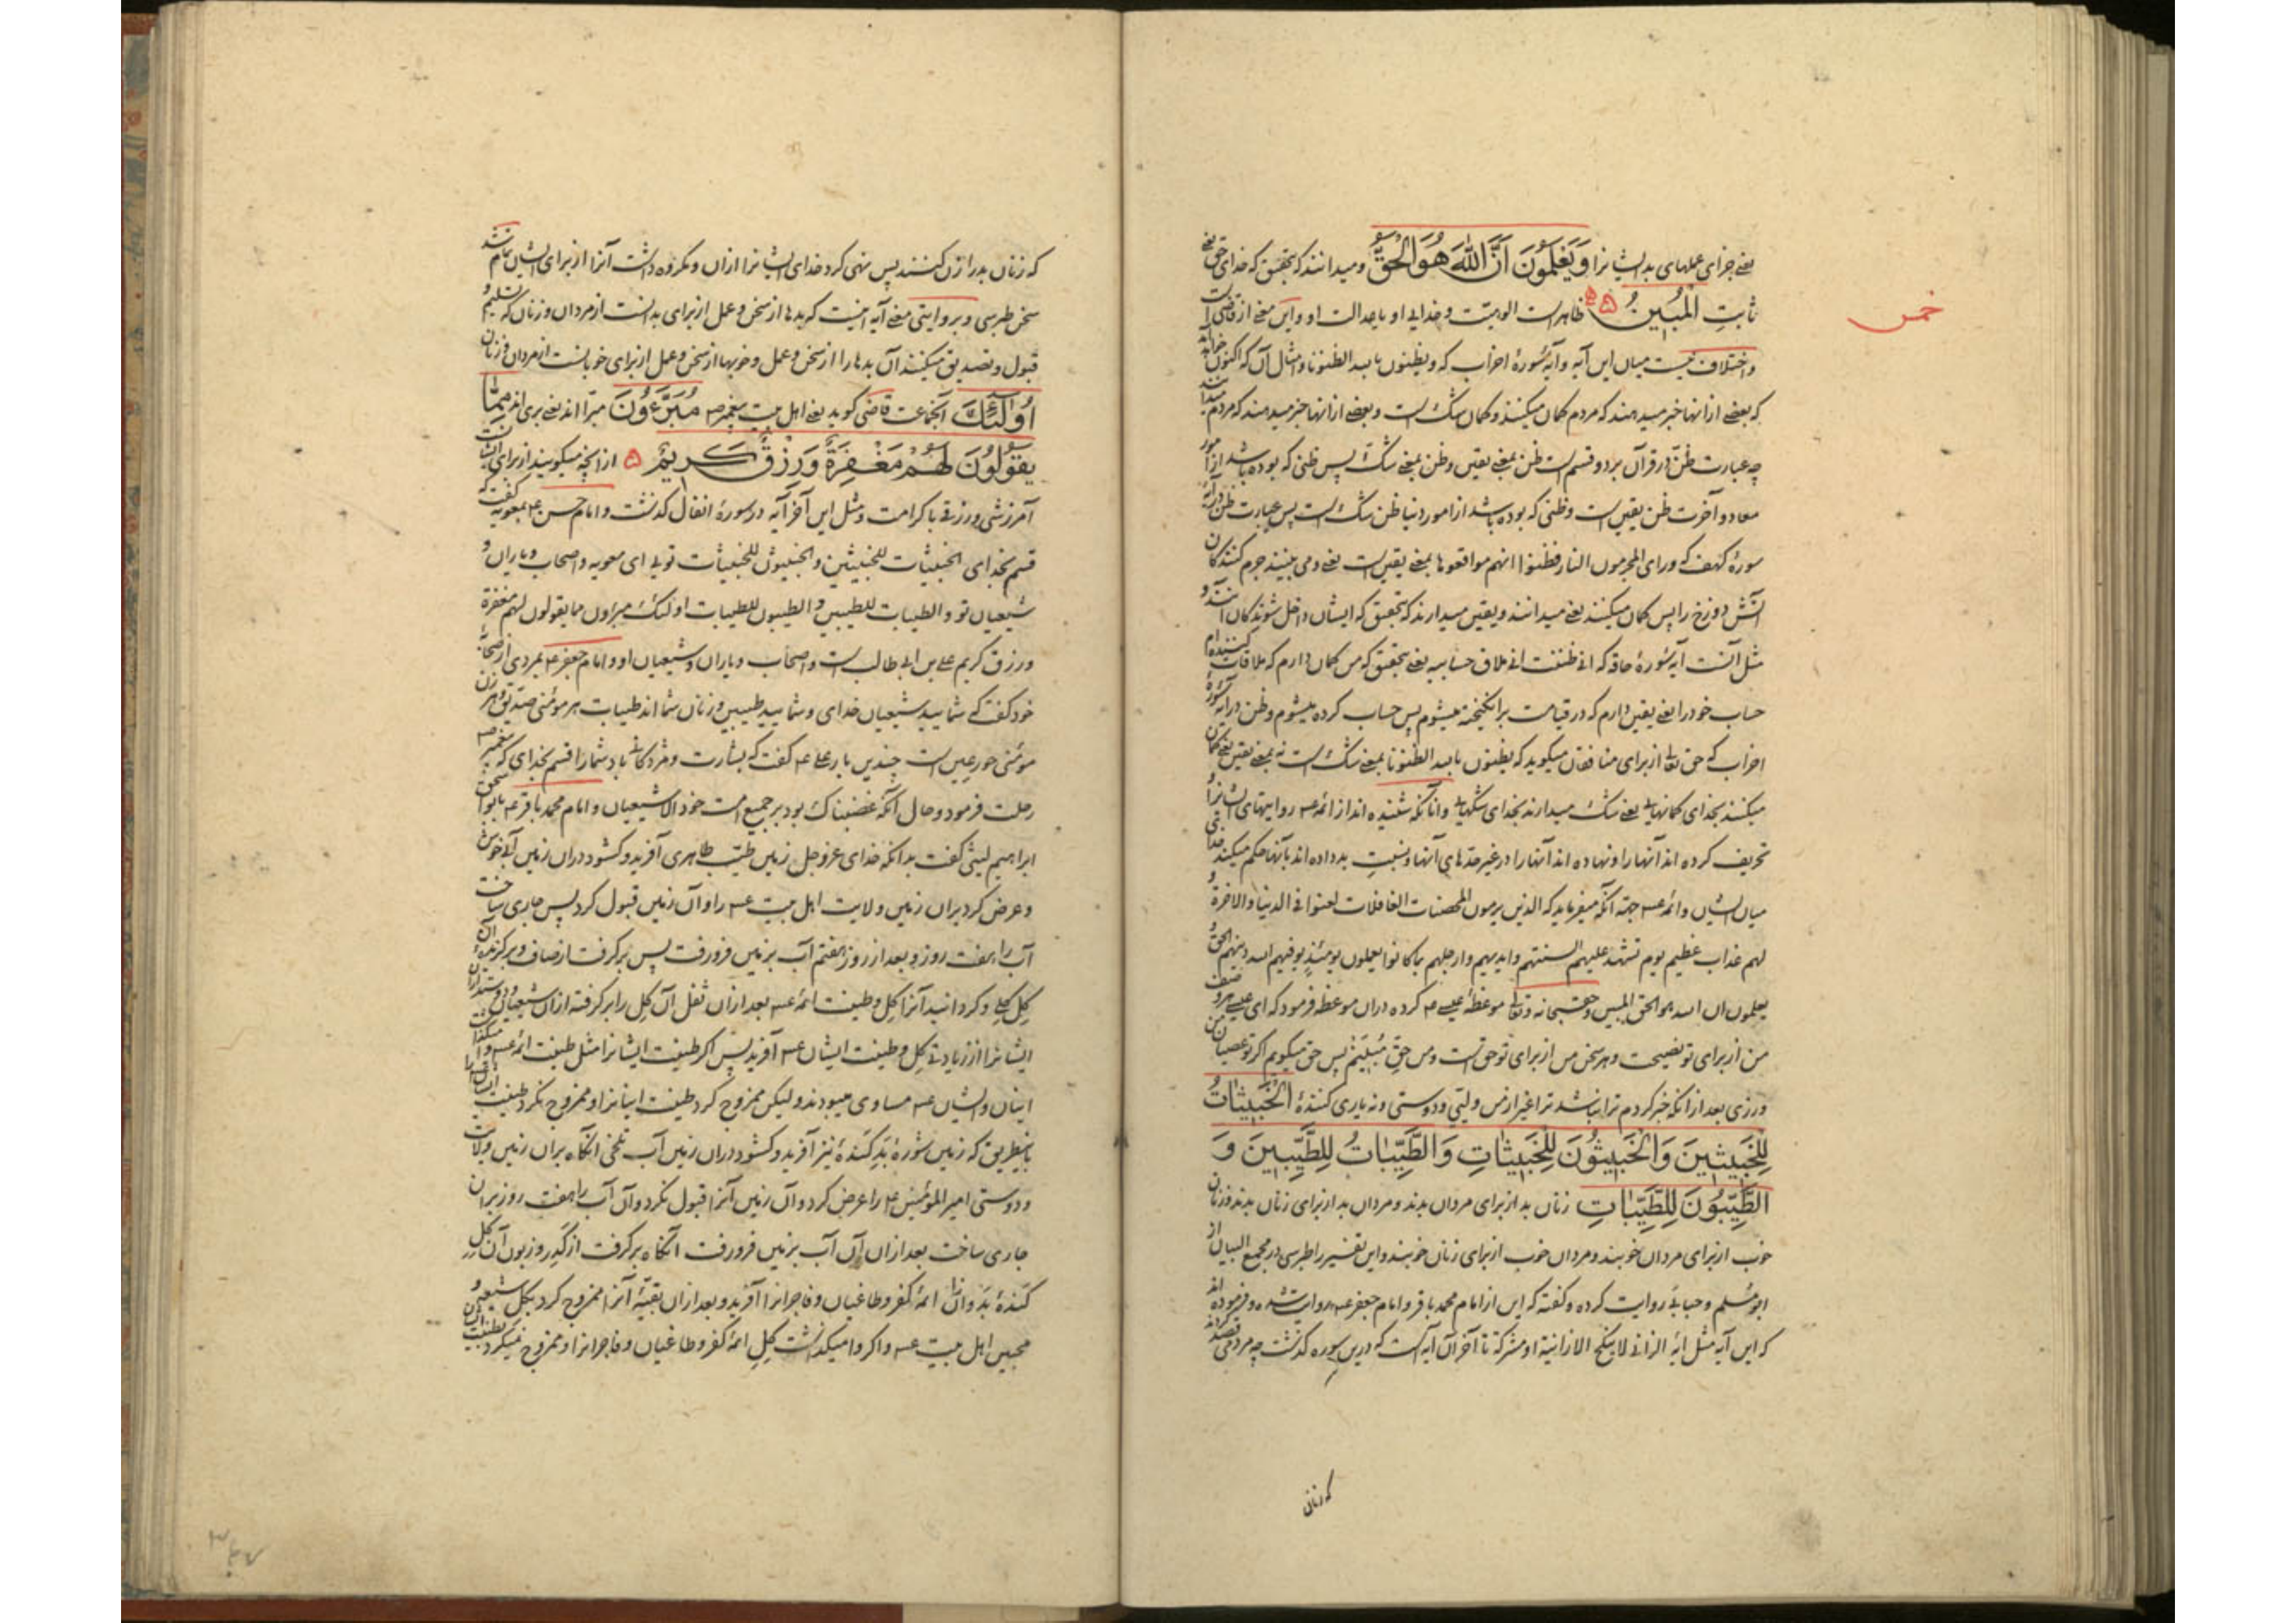 یعنی جزای عملهای بد ایشانرا وَيَعْلَمُونَ أَنَّ اللَّهَ هُوَ الْحَقُّ و میدانند که بتحقیق که خدای حق یعنی
ثابتِ الْمُبِينُ ظاهرست الوهیت و خدایی او یا عدالت او و این معنی از قاضی است
خمس
و اختلاف نیست میان این آیه و آیهٔ سورهٔ احزاب که و یظنون بالله الظنونا و امثال آن که اکنون خواند
که بعضی ازانها خبر میدهند که مردم کمان میکنند و کمان شک است و بعضی ازانها خبر میدهند که مردم
چه عبارت ظنّ در قرآن بر دو قسم است ظن بمعنی یقین و ظن بمعنی شک پس ظنی که بوده باشد از امور
معاد و آخرت ظن یقین است و ظنی که بوده باشد از امور دنیا ظن شک است پس عبارت ظن در آیه
سورهٔ کهف که و رای المجرمون النار فظنوا انهم مواقعوها بمعنی یقین است یعنی و می بینند جرم کنندکان
آتش دوزخ را پس کمان میکنند یعنی میدانند و یقین میدارند که بتحقیق که ایشان داخل شوندکان
مثل آنست آیه سورهٔ حاقه که انی ظننت انی ملاق حسابیه یعنی بتحقیق که من کمان دارم که ملاقات کننده ام
حساب خود را یعنی یقین دارم که در قیامت برانکیخته میشوم پس حساب کرده میشوم و ظن در آیه سورهٔ
احزاب که حق تعالی از برای منافقان میکوید که یظنون بالله الظنونا بمعنی شک است نه بمعنی یقین یعنی کمان
میکنند بخدای کمانهایی یعنی شک میدارند بخدای شکهایی و آنانکه شنیده اند از ائمه عم روایتهای ایشانرا
تحریف کرده اند آنها را و نهاده اند آنها را در غیر حدهای آنها و نسبت بد داده اند بآنها حکم میکند خدا
میان ایشان و ائمه عم جهة آنکه میفرماید که الذین یرمون المحصنات الغافلات لعنوا فی الدنیا و الاخرة و
لهم عذاب عظیم یوم تشهد علیهم السنتهم و ایدیهم و ارجلهم بما کانوا یعملون یومئذ یوفیهم الله دینهم الحق و
یعلمون ان الله هو الحق المبین و حق سبحانه و تعالی موعظهٔ عیسی عم کرده دران موعظه فرمود که ای عیسی
من از برای تو نصیحت و هر سخن من از برای تو حق است و من حقّ مُبینم پس حق میکویم اکر تو عصیان من
ورزی بعد ازانکه خبر کردم ترا نباشد ترا غیر از من ولیّی و دوستی و نه یاری کنندهٔ الْخَبِيثَاتُ
لِلْخَبِيثِينَ وَالْخَبِيثُونَ لِلْخَبِيثَاتِ وَالطَّيِّبَاتُ لِلطَّيِّبِينَ وَ
الطَّيِّبُونَ لِلطَّيِّبَاتِ زنان بد از برای مردان بدند و مردان بد از برای زنان بدند و زنان
خوب از برای مردان خوبند و مردان خوب از برای زنان خوبند و این تفسیر را طبرسی در مجمع البیان از
ابو مسلم و جبایی روایت کرده و کفته که این از امام محمد باقر و امام جعفر عم روایت شده و فرموده اند
که این آیه مثل ایه الزانی لا ینکح الا زانیة او مشرکة تا آخر آن آیه است که درین سوره کذشت چه مردمی قصد کردند
که زنان
که زنان بد را زن کنند پس نهی کرد خدای ایشانرا ازان و مکروه داشت آنرا از برای ایشان تمام شد
سخن طبرسی و بروایتی معنی آیه اینست که بدها از سخن و عمل از برای بدانست از مردان و زنان که تسلیم و
قبول و تصدیق میکنند آن بدها را از سخن و عمل و خوبها از سخن و عمل از برای خوبانست از مردان و زنان
أُولَٰئِكَ آنجماعت قاضی کوید یعنی اهل بیت پیغمبر ص مُبَرَّءُونَ مبرّا اند یعنی بری اند مِمَّا
يَقُولُونَ لَهُمْ مَغْفِرَةٌ وَرِزْقٌ كَرِيمٌ ازانچه میکویند از برای ایشانست
آمرزشی و رزقی با کرامت و مثل این آخر آیه در سورهٔ انفال کذشت و امام حسن عم بمعویه کفت که
قسم بخدای الخبیثات للخبیثین و الخبیثون للخبیثات تویی ای معویه و اصحاب و یاران و
شیعیان تو و الطیبات للطیبین و الطیبون للطیبات اولئک مبرؤن مما یقولون لهم مغفرة
و رزق کریم علی بن ابی طالب است و اصحاب و یاران و شیعیان او و امام جعفر عم بمردی از اصحاب
خود کفت که شمایید شیعیان خدای و شمایید طیبین و زنان شما اند طیبات هر مؤمنی صدیق و هر زن
مؤمنی حور عین است چندین بار علی عم کفت که بشارت و مژدکانی باد شما را قسم بخدای که پیغمبر ص
رحلت فرمود و حال آنکه غضبناک بود بر جمیع امت خود الا شیعیان و امام محمد باقر عم بابو اسحق
ابراهیم لیثی کفت بدانکه خدای عز و جل زمین طیّب طاهری آفرید و کشود دران زمین آبی خوش
و عرض کرد بران زمین ولایت اهل بیت عم را و آن زمین قبول کرد پس جاری ساخت
آب را هفت روز و بعد از روز هفتم آب بزمین فرو رفت پس برکرفت از صاف و برکزیدهٔ آن
کِل کِلی و کردانید آنرا کِل و طینت ائمه عم بعد ازان ثفل آن کِل را برکرفته ازان شیعیان و دوستداران
ایشانرا از زیادتی کِل و طینت ایشان عم آفرید پس اکر طینت ایشانرا مثل طینت ائمه عم وا میکذاشت
اینان و ایشان عم مساوی میبودند و لیکن ممزوج کرد طینت اینانرا و ممزوج نکرد طینت ایشانرا
باینطریق که زمین شورهٔ بَدِ کَندهٔ نیز آفرید و کشود دران زمین آب تلخی انکاه بران زمین ولایت
و دوستی امیر المؤمنین عم را عرض کرد و آن زمین آنرا قبول نکرد و آن آب را هفت روز بران
جاری ساخت بعد ازان آن آب بزمین فرو رفت آنکاه برکرفت از کَدِر و زبون آن کِل
کَندهٔ بَد و ازان ائمهٔ کفر و طاغیان و فاجرانرا آفرید و بعد ازان بقیّهٔ آنرا ممزوج کرد بکل شیعه و
محبین اهل بیت عم و اکر وا میکذاشت کِلِ ائمهٔ کفر و طاغیان و فاجرانرا و ممزوج نمیکرد بطینت ایشان